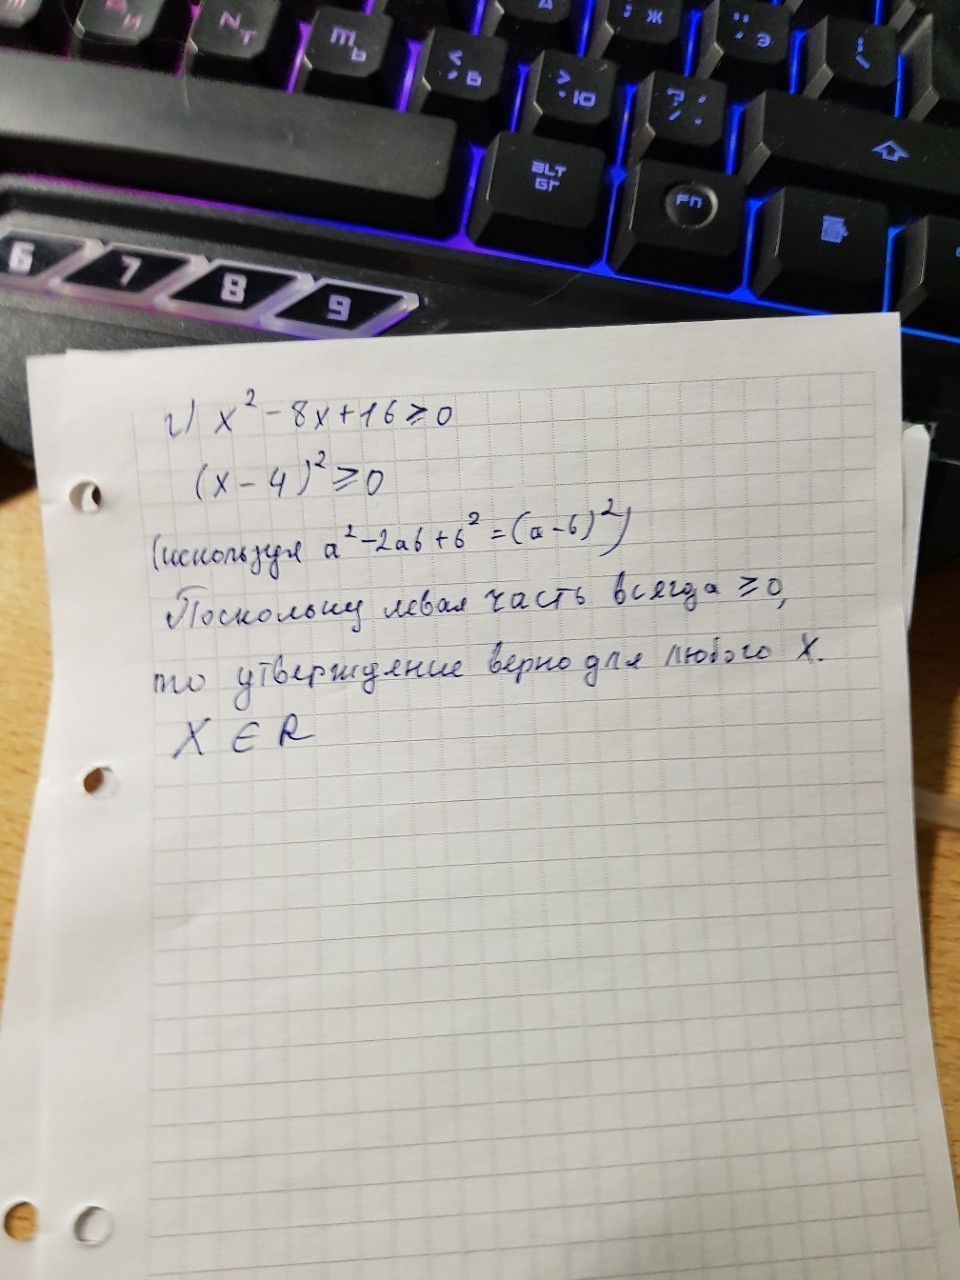 И
N
T
Ь
<
,
Б
>
.
Ю
Ж
Э
?
/
ALT
GR
FN
6
7
8
9
г) x² - 8x + 16 ≥ 0
(x - 4)² ≥ 0
(используя a² - 2ab + b² = (a - b)²)
Поскольку левая часть всегда ≥ 0,
то утверждение верно для любого x.
X ∈ R